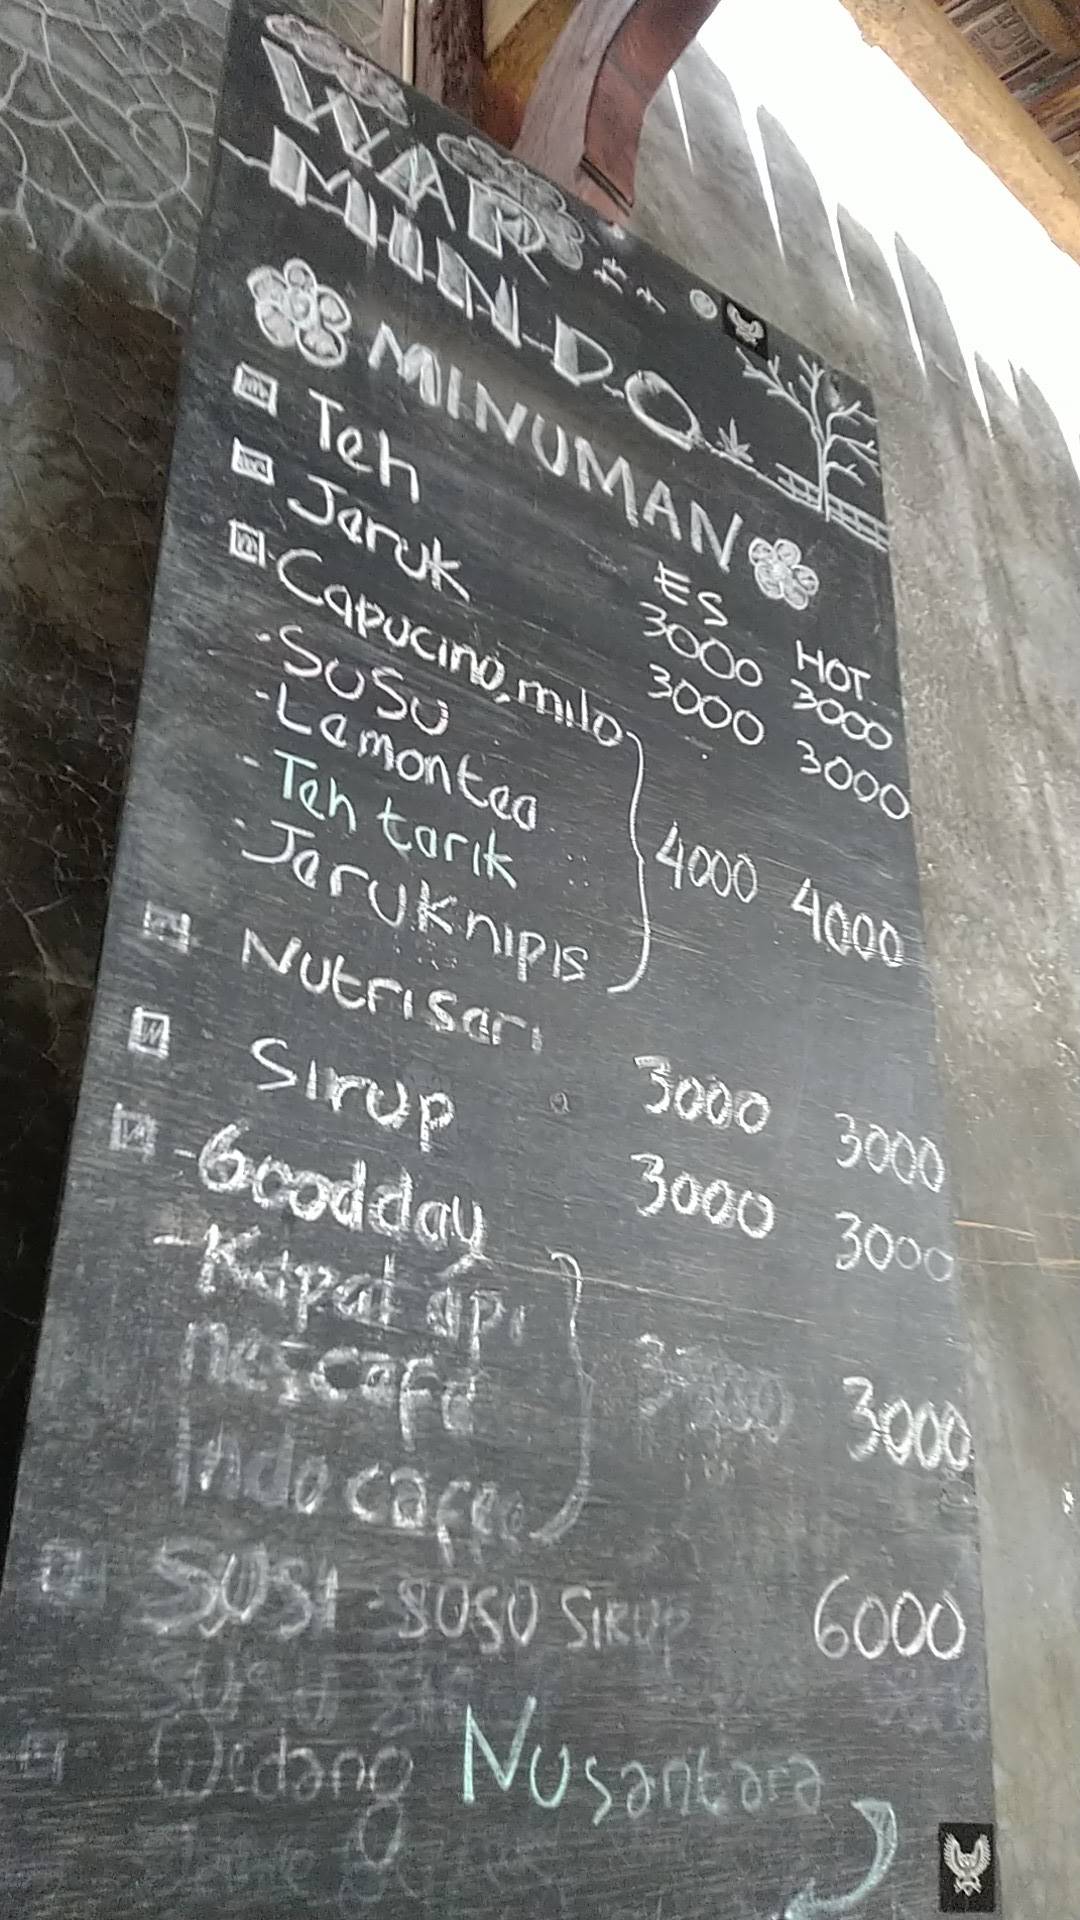 WAR
MIN DO
MINUMAN
ES HOT
Teh 3000 3000
Jeruk 3000 3000
Capucino, milo
- Susu
- Lemontea
- Teh tarik
- Jeruk nipis
4000 4000
Nutrisari 3000 3000
Sirup 3000 3000
- Goodday
- Kapal api
nescafe
Indocafe
3000 3000
SUSI - SUSU SIRUP 6000
Wedang Nusantara